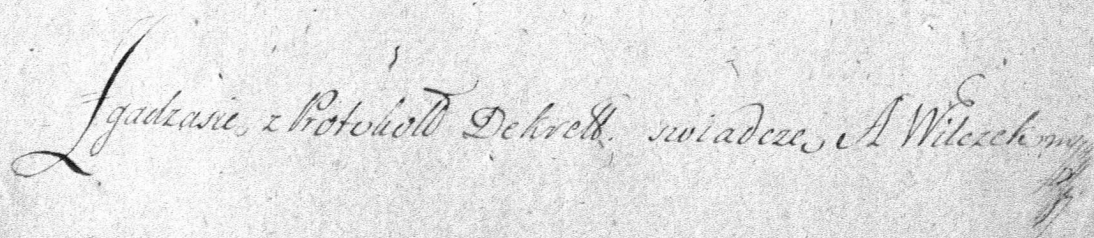 Zgadzasię z Protokołł Dekrett. swiadczę A Wilczek